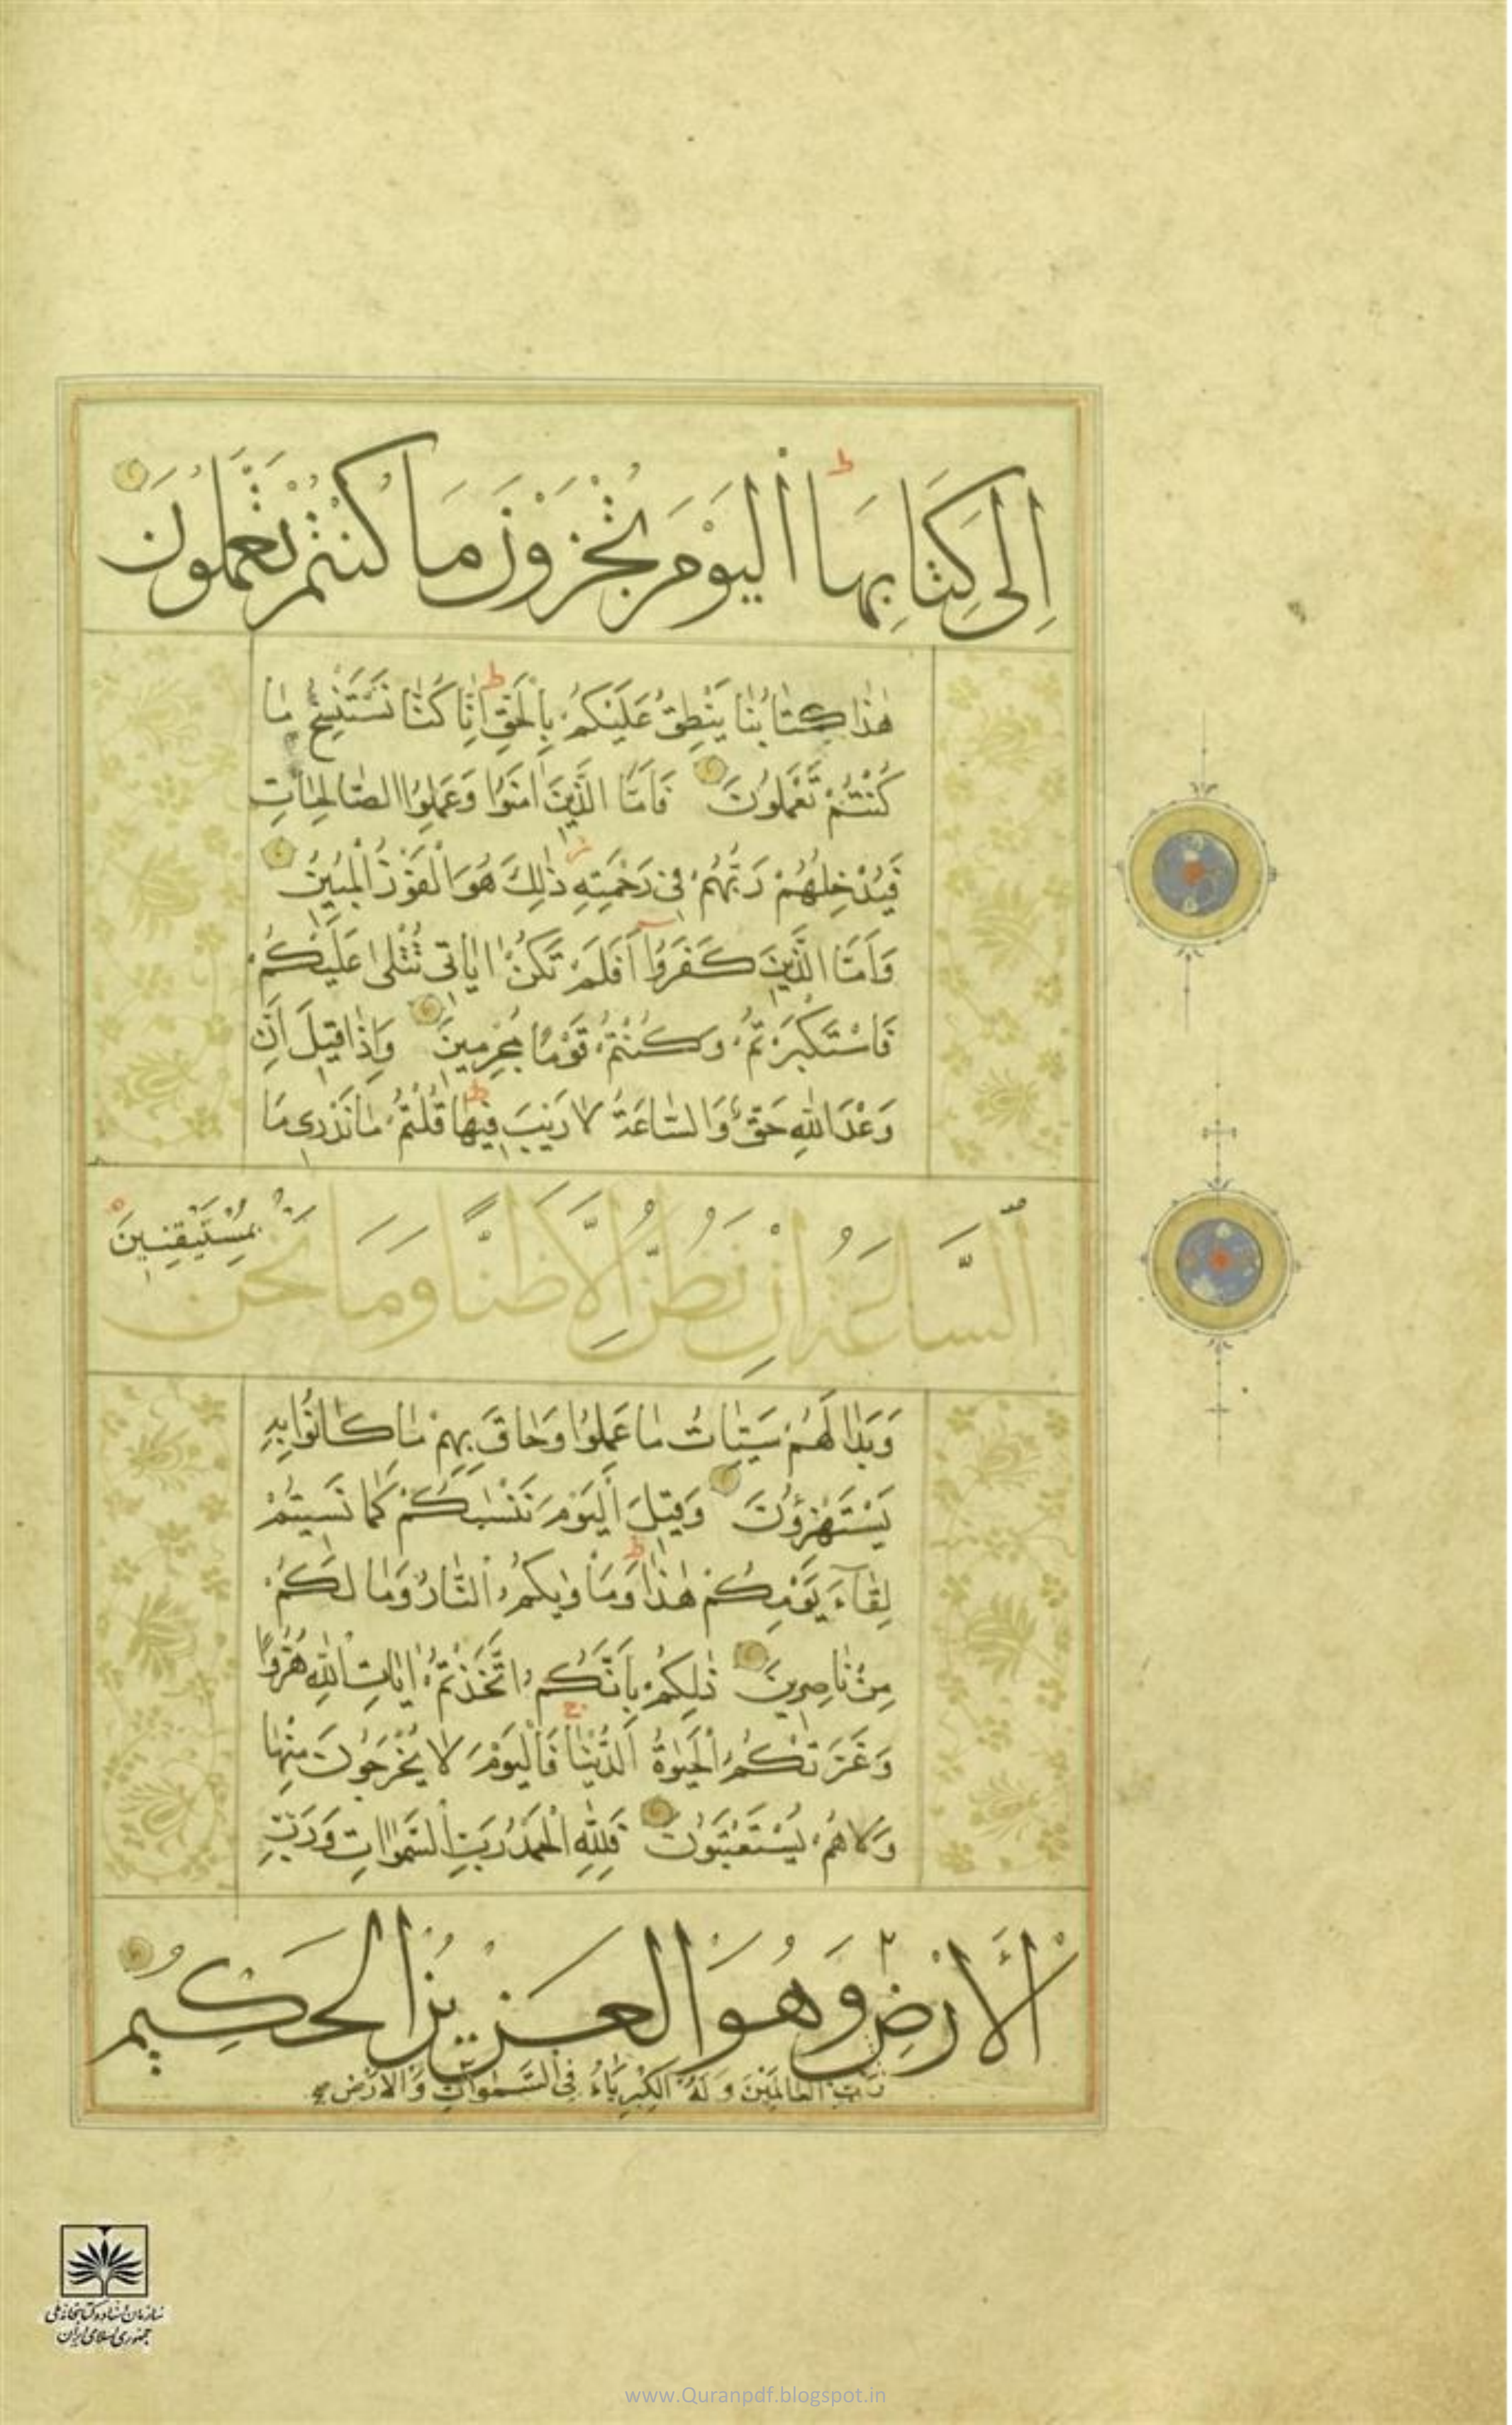 اِلىٰ كِتَابِهَا اَلْيَوْمَ تُجْزَوْنَ مَا كُنْتُمْ تَعْمَلُونَ
هٰذَا كِتَابُنَا يَنْطِقُ عَلَيْكُمْ بِالْحَقِّ اِنَّا كُنَّا نَسْتَنْسِخُ مَا
كُنْتُمْ تَعْمَلُونَ فَاَمَّا الَّذِينَ اٰمَنُوا وَعَمِلُوا الصَّالِحَاتِ
فَيُدْخِلُهُمْ رَبُّهُمْ فِى رَحْمَتِهِ ذٰلِكَ هُوَ الْفَوْزُ الْمُبِينُ
وَاَمَّا الَّذِينَ كَفَرُوا اَفَلَمْ تَكُنْ اٰيَاتِى تُتْلىٰ عَلَيْكُمْ
فَاسْتَكْبَرْتُمْ وَكُنْتُمْ قَوْمًا مُجْرِمِينَ وَاِذَا قِيلَ اِنَّ
وَعْدَ اللّٰهِ حَقٌّ وَالسَّاعَةُ لَا رَيْبَ فِيهَا قُلْتُمْ مَا نَدْرِى مَا
السَّاعَةُ اِنْ نَظُنُّ اِلَّا ظَنًّا وَمَا نَحْنُ بِمُسْتَيْقِنِينَ
وَبَدَا لَهُمْ سَيِّئَاتُ مَا عَمِلُوا وَحَاقَ بِهِمْ مَا كَانُوا بِهِ
يَسْتَهْزِؤُنَ وَقِيلَ الْيَوْمَ نَنْسٰيكُمْ كَمَا نَسِيتُمْ
لِقَآءَ يَوْمِكُمْ هٰذَا وَمَاْوٰيكُمُ النَّارُ وَمَا لَكُمْ
مِنْ نَاصِرِينَ ذٰلِكُمْ بِاَنَّكُمُ اتَّخَذْتُمْ اٰيَاتِ اللّٰهِ هُزُوًا
وَغَرَّتْكُمُ الْحَيٰوةُ الدُّنْيَا فَالْيَوْمَ لَا يُخْرَجُونَ مِنْهَا
وَلَا هُمْ يُسْتَعْتَبُونَ فَلِلّٰهِ الْحَمْدُ رَبِّ السَّمٰوَاتِ وَرَبِّ
الْاَرْضِ وَهُوَ الْعَزِيزُ الْحَكِيمُ
رَبِّ الْعَالَمِينَ وَلَهُ الْكِبْرِيَاءُ فِى السَّمٰوَاتِ وَالْاَرْضِ صح
سازمان اسناد و کتابخانه ملی
جمهوری اسلامی ایران
www.Quranpdf.blogspot.in